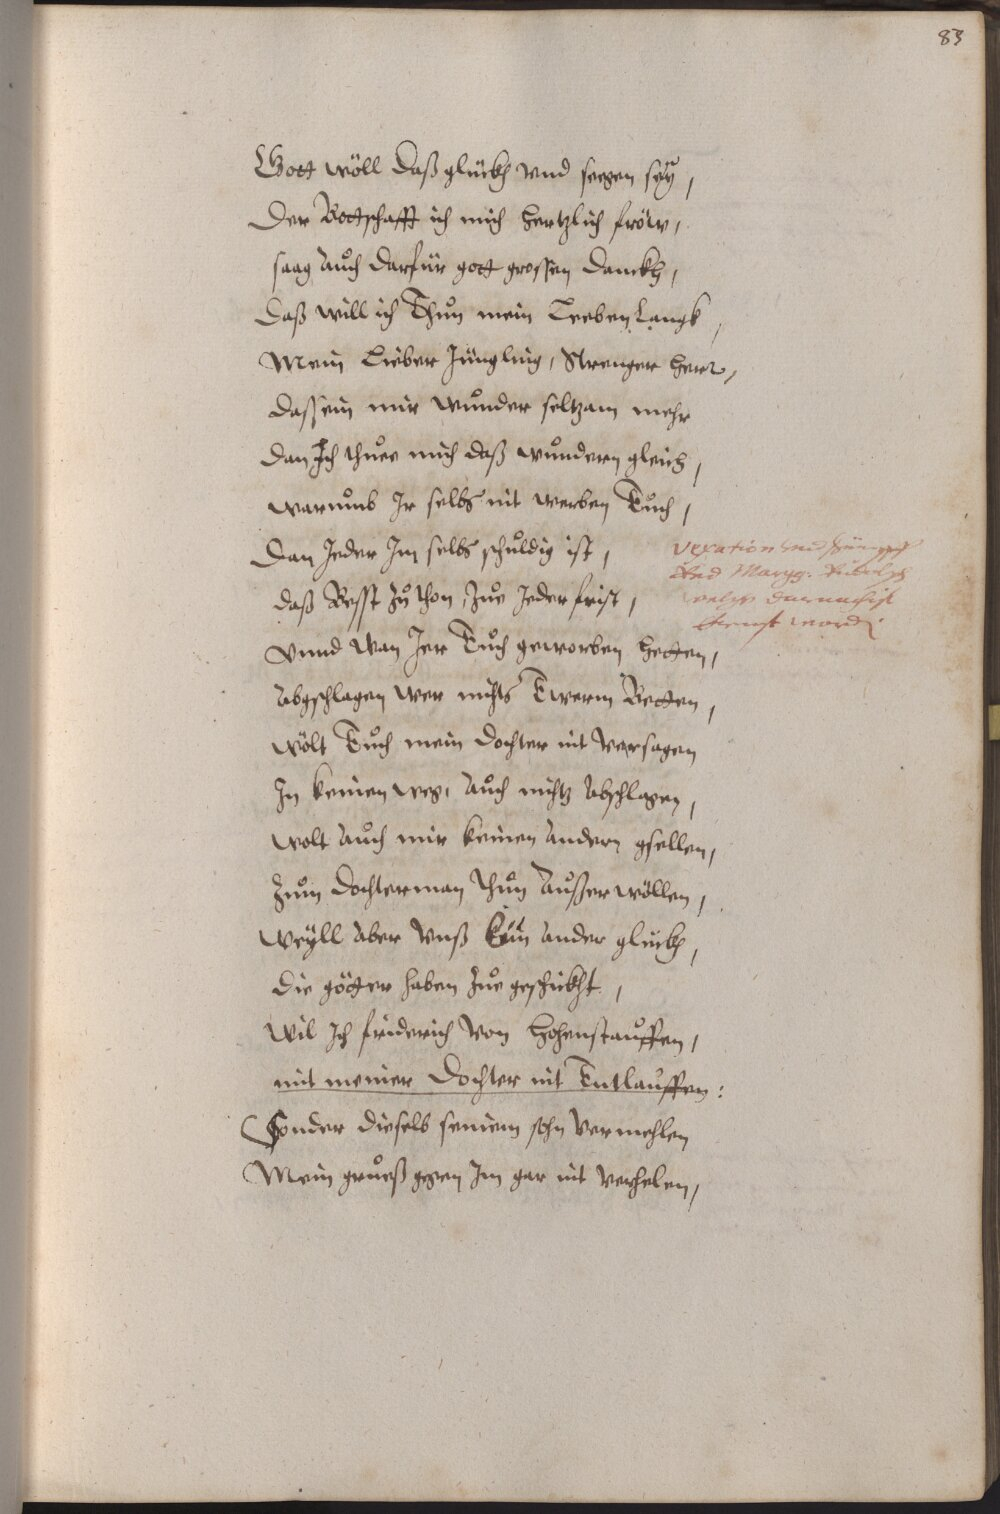 83
Gott wöll daß glückh vnd seegen seÿ,
Der Bottschafft ich mich hertzlich fröw,
saag Aůch darfür gott grossen danckh,
Daß will ich Thůn mein Leeben Langk,
Mein Lieber Jüngling, Strenger herr,
dassein mir wůnder seltzam mehr
dan Ich thuee mich daß wůndern gleich,
warůmb Jr selbs nit werben Eůch,
Dan Jeder Jm selbs schůldig ist,
daß Besst Zů thon, Zůe Jeder frist,
Vnnd wan Jer Eůch geworben hetten,
Abgschlagen wer nichts Ewerm Betten,
wölt Eůch mein dochter nit Versagen
Jn keinen weg, Aůch nichtz Abschlagen,
wolt Aůch mir keinen Andern gsellen,
Zům dochterman Thůn Aůßerwöllen,
Weÿll Aber Vnß Kein Ander glückh,
die götter haben Zůe geschickht,
Wil Jch friderich Von Hohenstaůffen,
mit meiner Dochter nit Entlaůffen:
Sonder dieselb seinem sohn Vermehlen
Mein grůeß gegen Jm gar nit Verhelen,
Vexation
Marggr. Rudolph
darnach ist
Ernst worden